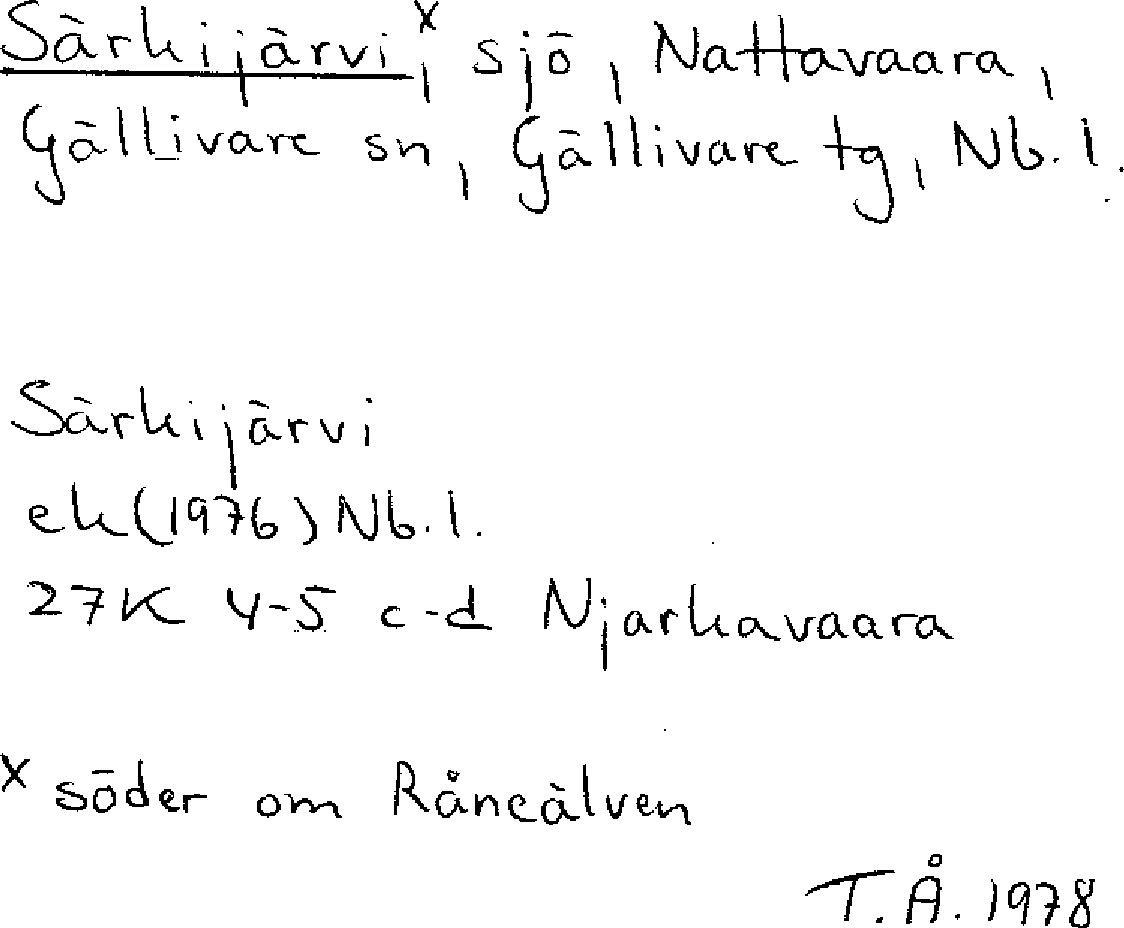 Särkijärvi x, sjö, Nattavaara,
Gällivare sn, Gällivare tg, Nb. l.
Särkijärvi
ek (1976) Nb. l.
27K 4-5 c-d Njarkavaara
x söder om Råneälven
T. Å. 1978